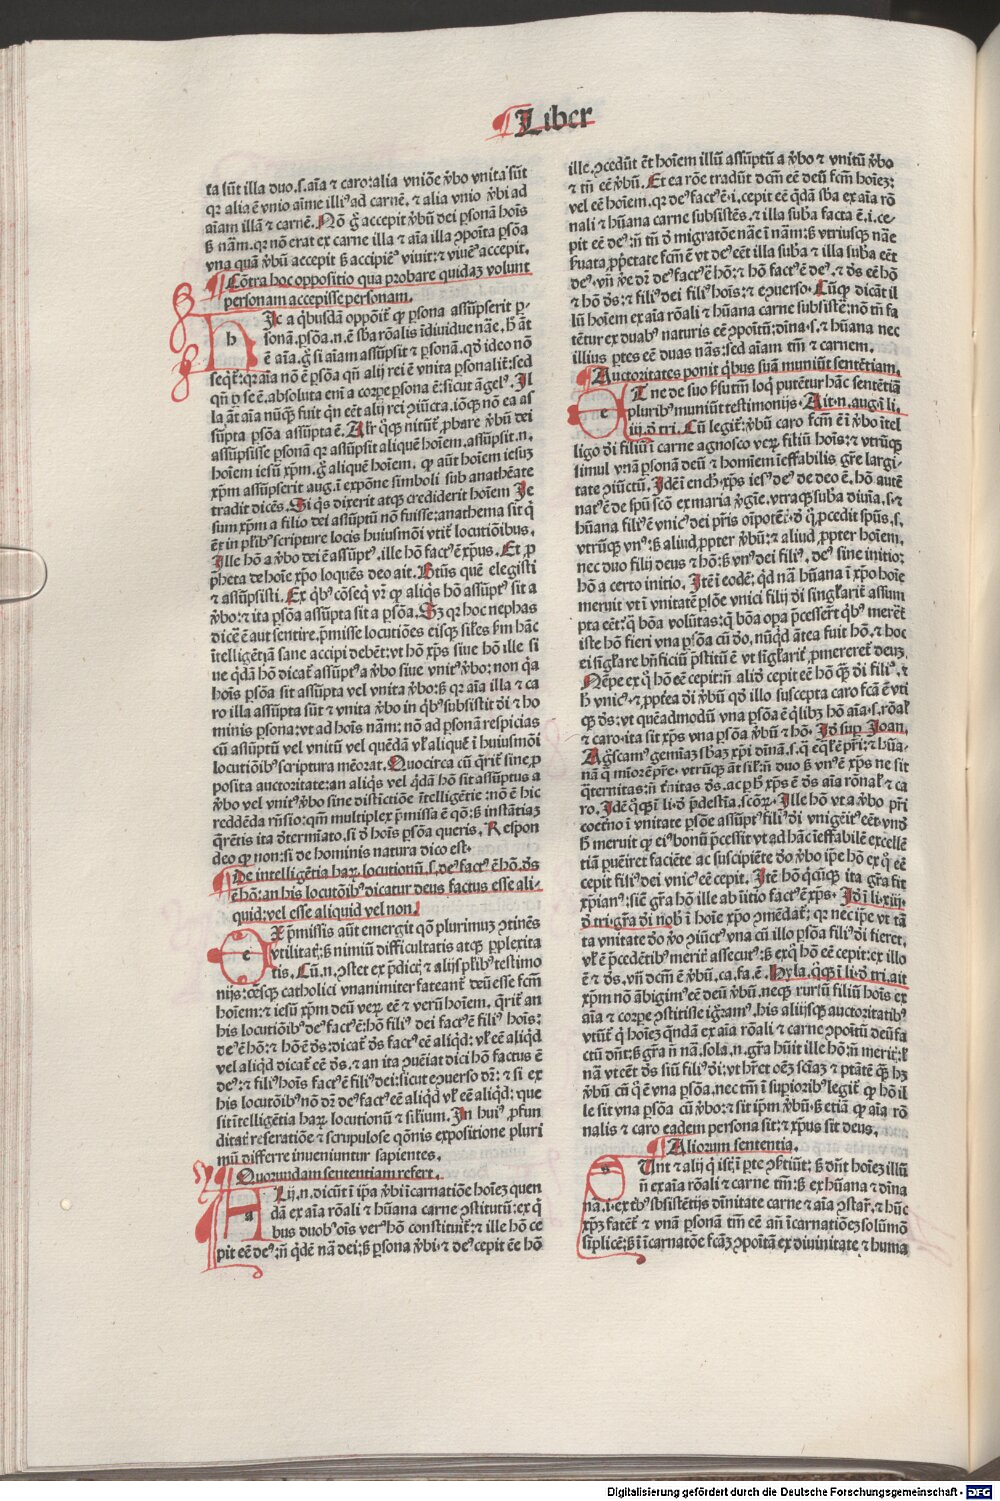 Liber
ta sūt illa duo.s.aīa ⁊ caro:alia vniōe v̄bo vnita sūt
qꝛ alia ē vnio aīme illiꝰ ad carnē. ⁊ alia vnio v̄bi ad
aīam illā ⁊ carnē. Nō g̊ accepit v̄bū dei ꝑsonā hoīs
ꝫ nām. qꝛ nō erat ex carne illa ⁊ aīa illa ꝯpoīta ꝑsōa
vna quā v̄bū accepit
Cōtra hoc oppositio qua probare quidaʒ volunt
personam accepisse personam.
Ic a q̇busdā oppōit̄ qꝙ ꝑsona assūpserit ꝑ-
sonā. ꝑsōa.n.ē sb̄a rōalis īdiuidue nāe. h̄ āt
ē aīa. g̊ si aīam assūpsit ⁊ ꝑsonā. qd̓ ideo nō
seq̇t̄: qꝛ aīa nō ē ꝑsōa qn̄ alij rei ē vnita ꝑsonalit̄: sed
qn̄ ꝑ se ē. absoluta eni a corꝑe ꝑsona ē: sicut āgelꝰ. Il
la āt aīa nūqꝫ fuit qn̄ eēt alij rei ꝯiūcta. iōqꝫ nō ea as
sūpta ꝑsōa assūpta ē. Alr̄ q̇qꝫ nitūt̄ ꝓbare v̄bū dei
assūpsisse ꝑsonā qꝛ assūpsit aliquē hoīem. assūpsit.n.
hoīem iesū xp̄m. g̊ aliquē hoīem. qꝙ aūt hoīem iesuʒ
xp̄m assūpserit aug. ī expōne simboli sub anathēate
tradit dicēs. Si q̇s dixerit atqꝫ crediderit hoīem Je
sum xp̄m a filio dei assūptū nō fuisse: anathema sit q̇
Ex in pl̄ibꝰ scripture locis huiusmōi vtit̄ locutiōibus.
Ille hō a v̄bo dei ē assūptꝰ. ille hō factꝰ ē xp̄us. Et ꝓ
pheta de hoīe xp̄o loquēs deo ait. Btūs quē elegisti
⁊ assūpsisti. Ex q̇bꝰ cōseq̄ vr̄ qꝙ aliq̇s hō assūptꝰ sit a
v̄bo: ⁊ ita ꝑsōa assūpta sit a ꝑsōa. Sʒ qꝛ hoc nephas
dicē ē aut sentire. p̄misse locutiōes eisqꝫ sil̄es s̄m hāc
ītelligētiā sane accipi debēt: vt hō xp̄s siue hō ille si
ue q̇dā hō dicat̄ assūptꝰ a v̄bo siue vnitꝰ v̄bo: non q̇a
hoīs ꝑsōa sit assūpta vel vnita v̄bo: ꝫ qꝛ aīa illa ⁊ ca
ro illa assūpta sūt ⁊ vnita v̄bo in q̇bꝰ subsistit d̄i ⁊ ho
minis ꝑsona: vt ad hoīs nām: nō ad ꝑsonā respicias
cū assūptū vel vnitū vel quēdā vl̄ aliquē ī huiusmōi
locutiōibꝰ scriptura mēorat. Quocirca cū q̇rit̄ sine ꝓ
posita auctoritate: an aliq̇s vel q̇dā hō sit assūptus a
v̄bo vel vnitꝰ v̄bo sine distīctiōe ītelligētie: nō ē hic
reddēda rn̄sio: qm̄ multiplex p̄missa ē qō: ꝫ instātiaʒ
q̇rētis ita d̓termīato. si d̓ hoīs ꝑsōa queris. Respon
deo qꝙ non: si de hominis natura dico est.
De intelligētia haꝝ locutionū.s. deꝰ factꝰ ē hō. d̓s
ē hō: an his locutōibꝰ dicatur deus factus esse ali-
quid: vel esse aliquid vel non.
X p̄missis aūt emergit qō plurimuʒ ꝯtinēs
vtilitat̄: ꝫ nimiū difficultatis atqꝫ ꝑplexita
tis. Cū.n. ꝯstet ex p̄dict̄ ⁊ alijs pl̄ibꝰ testimo
nijs: oēsqꝫ catholici vnanimiter fateant̄ deū esse fcm̄
hoīem: ⁊ iesū xp̄m deū veꝝ eē ⁊ verū hoīem. q̇rit̄ an
his locutiōibꝰ deꝰ factꝰ ē: hō filiꝰ dei factꝰ ē filiꝰ hoīs:
deꝰ ē hō: ⁊ hō ē d̓s: dicat̄ d̓s factꝰ eē aliqd: vl̄ eē aliqd
vel aliqd dicat̄ eē d̓s. ⁊ an ita ꝯueīat dici hō factus ē
deꝰ: ⁊ filiꝰ hoīs factꝰ ē filiꝰ dei: sicut ecōuerso dr̄: ⁊ si ex
his locutōibꝰ nō dr̄ deꝰ factꝰ eē aliqd vl̄ eē aliqd: que
sit ītelligētia haꝝ locutionū ⁊ silium. In huiꝰ ꝓfun
ditat̄ reseratiōe ⁊ scrupulose qōnis expositione pluri
mū differre inueniuntur sapientes.
Quorundam sententiam refert.
Lij.n. dicūt ī ip̄a v̄bi īcarnatiōe hoīeʒ quen
dā ex aīa rōali ⁊ hūana carne ꝯstitutū: ex q̇
bus duobꝰ oīs verꝰ hō constituit̄: ⁊ ille hō ce
pit eē deꝰ: n̄ q̇dē nā dei: ꝫ ꝑsona v̄bi: ⁊ deꝰ cepit eē hō
ille. ꝯcedūt ēt hoīem illū assūptū a v̄bo ⁊ vnitū v̄bo
⁊ tn̄ eē v̄bū. Et ea rōe tradūt dcm̄ eē deū fcm̄ hoīeʒ:
vel eē hoīem. qꝛ deꝰ factꝰ ē.i. cepit eē q̇dā sb̄a ex aīa rō
nali ⁊ hūana carne subsistēs. ⁊ illa sub̄a facta ē.i.ce-
pit eē deꝰ: n̄ tn̄ d̓ migratōe nāe ī nām: ꝫ vtriusqꝫ nāe
ẜuata ꝓp̄etate fcm̄ ē vt deꝰ eēt illa sub̄a ⁊ illa sub̄a eēt
deꝰ. vn̄ v̄e dr̄ deꝰ factꝰ ē hō: ⁊ hō factꝰ ē deꝰ. ⁊ d̓s eē hō
⁊ hō d̓s: ⁊ filiꝰ dei filiꝰ hoīs: ⁊ ecōuerso. Cūqꝫ dicāt il
lū hoīem ex aīa rōali ⁊ hūana carne subsistē: nō tn̄ fa
tētur ex duabꝰ naturis eē ꝯpoitū: diīna.s.⁊ hūana nec
illius ꝑtes eē duas nās: sed aīam tm̄ ⁊ carnem.
Auctoritates ponit q̇bus suā muniūt sentētiam.
T ne de suo ẜsu tm̄ loq̇ putētur hāc sentētiā
pluribꝰ muniūt testimonijs. Ait.n. aug. ī li.
iij. d̓ tri. Cū legit̄: v̄bū caro fcm̄ ē ī v̄bo ītel
ligo d̄i filiū ī carne agnosco veꝝ filiū hoīs: ⁊ vtrūqꝫ
simul vnā ꝑsonā deū ⁊ hominē īeffabilis gr̄e largi-
tate ꝯiūctū. Idē ī ench. xp̄s iesꝰ deꝰ de deo ē. hō autē
natꝰ ē de sp̄u scō ex maria v̓gīe. vtraqꝫ sub̄a diuīa.s.⁊
hūana filiꝰ ē vnicꝰ dei pr̄is oīpotēt̄: d̓ q̊ ꝓcedit sp̄us.s.
vtrūqꝫ vnꝰ: ꝫ aliud ꝓpter v̄bū: ⁊ aliud ꝓpter hoīem.
nec duo filij deus ⁊ hō: ꝫ vnꝰ dei filiꝰ. deꝰ sine initio:
hō a certo initio. Itē ī eodē: q̇d nā hūana ī xp̄o hoīe
meruit vt ī vnitatē ꝑsōe vnici filij d̄i singl̄arit̄ assum
pta eēt: q̄ bōa volūtas: q̄ bōa oꝑa p̄cesser̄t q̇bꝰ merer̄t
iste hō fieri vna ꝑsōa cū d̄o. nūq̇d ātea fuit hō. ⁊ hoc
ei sigl̄are bn̄ficiū p̄stitū ē vt sigl̄arit̄ ꝓmereret̄ deuʒ.
Nēpe ex q̊ hō eē cepit: n̄ aliō cepit eē hō qꝫ d̄i filiꝰ. ⁊
h̄ vnicꝰ. ⁊ ꝓpt̄ea d̄i v̄bū qd̓ illo suscepta caro fcā ē vti
qꝫ d̓s: vt quēadmodū vna ꝑsōa ē q̇libʒ hō aīa.s.rōal̄
⁊ caro. ita sit xp̄s vna ꝑsōa v̄bū ⁊ hō. Id̓ suꝑ Joan.
Agscamꝰ gemīaʒ sb̄aʒ xp̄i dīnā.s.q̄ eq̄l̄ ē pr̄i: ⁊ hūa-
nā q̄ mīor ē pr̄e. vtrūqꝫ āt sil̄: n̄ duo ꝫ vnꝰ ē xp̄s ne sit
q̇ternitas: n̄ t̓nitas d̓s. ac ꝑ h̄ xp̄s ē d̓s aīa rōnal̄ ⁊ ca
ro. Idē q̇qꝫ ī li. d̓ p̄destīa. scōꝝ. Ille hō vt a v̄bo pr̄i
coet̓no ī vnitate ꝑsōe assūptꝰ filiꝰ d̄i vnigēit̄ eēt. vnd̓
h̄ meruit qꝙ eiꝰ bonū p̄cessit vt ad hāc īeffabilē excellē
tiā ꝑueīret faciēte ac suscipiēte d̄o v̄bo ip̄e hō ex q̊ eē
cepit filiꝰ dei vnicꝰ eē cepit. Itē hō q̇cūqꝫ ita gr̄a fit
xp̄ianꝰ: sicꝰ gr̄a hō ille ab ītio factꝰ ē xp̄s. Id̓ ī li. xiij.
d̓ tri. gr̄a d̄i nob̄ ī hoīe xp̄o ꝯmēdat̄: qꝛ nec ip̄e vt tā
ta vnitate d̄o v̄o ꝯiūctꝰ vna cū illo ꝑsōa filiꝰ d̄i fieret.
vl̄l̄ ē p̄cedētibꝰ merit̄ assecutꝰ: ꝫ ex q̊ hō eē cepit: ex illo
ē ⁊ d̓s. vn̄ dcm̄ ē v̄bū. ca. fa. ē. Hyla. q̇qꝫ ī li. d̓ tri. ait
xp̄m nō ābigimꝰ eē deū v̄bū. neqꝫ rursū filiū hoīs ex
aīa ⁊ corꝑe ꝯstitisse ig̊ram̄ꝰ. his alijsqꝫ auctoritatibꝰ
vtūt̄ q̇ hoīeʒ quēdā ex aīa rōali ⁊ carne ꝯpoītū deū fa
ctū dn̄t: ꝫ gr̄a n̄ nā. sola.n. gr̄a hūit ille hō: n̄ merit̄: l̄
nā vt eēt d̓s siue filiꝰ d̄i: vt hr̄et oēʒ sciāʒ ⁊ ptātē qꝫ hʒ
v̄bū cū q̊ ē vna ꝑsōa. nec tm̄ ī suꝑioribꝰ legit̄ qꝙ hō il
le sit vna ꝑsōa cū v̄bo: ⁊ sit ip̄m v̄bū. ꝫ etiā qꝙ aīa rō
nalis ⁊ caro eadem persona sit: ⁊ xp̄us sit deus.
Aliorum sententia.
Unt ⁊ alij q̇ ist̄ ī ꝑte ꝯs̄tiūt: ꝫ dn̄t hoīeʒ illū
n̄ ex aīa rōali ⁊ carne tm̄: ꝫ ex hūana ⁊ dīna
nā.i. ex tbꝰ sb̄sistētijs dīnitate carne ⁊ aīa ꝯstar̄. ⁊ hūc
xp̄ʒ fatēt̄ ⁊ vnā ꝑsonā tm̄ eē an̄ īcarnatiōeʒ solūmō
sīplicē: ꝫ ī īcarnatōe fcāʒ ꝯpoītā ex diuinitate ⁊ huma
Digitalisierung gefördert durch die Deutsche Forschungsgemeinschaft - DFG